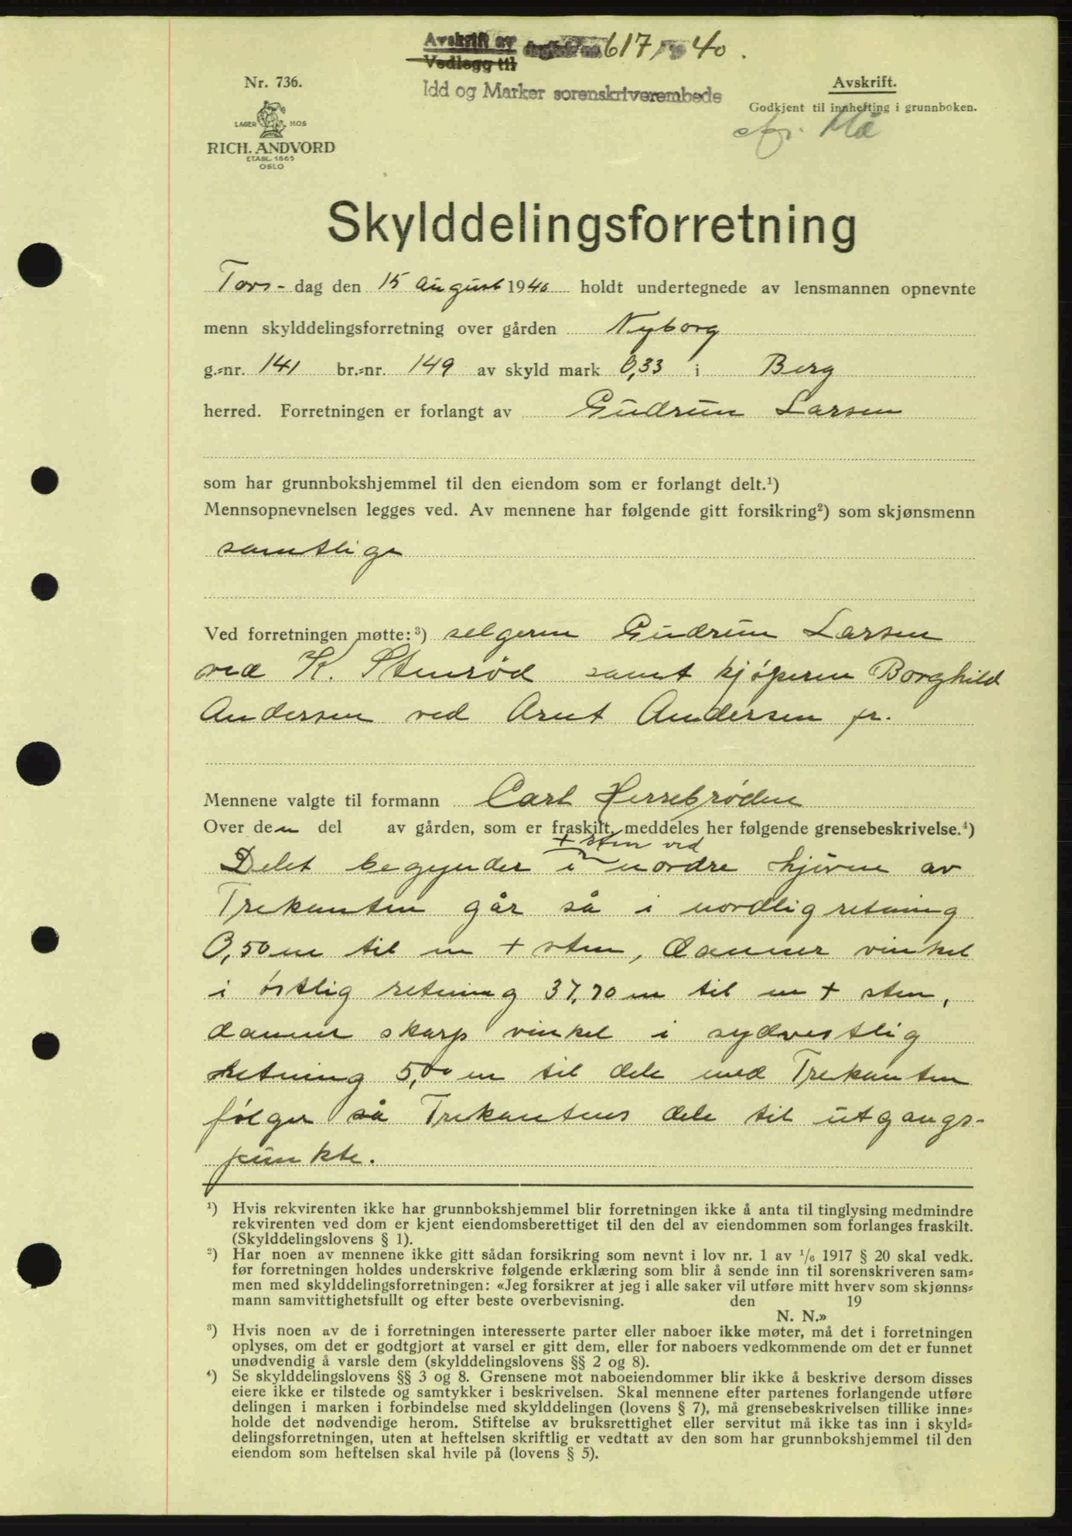 Avskrift av
Vedlegg til dagbok nr. 617/1940.
Idd og Marker sorenskriverembede
Nr. 736.
Avskrift.
Godkjent til innhefting i grunnboken.
LAGER MOS
RICH. ANDVORD
ETABL. 1865
OSLO
Skylddelingsforretning
Tors-dag den 15 August 1940 holdt undertegnede av lensmannen opnevnte
menn skylddelingsforretning over gården Nyborg
g.-nr. 141 br.-nr. 149 av skyld mark 0,33 i Berg
herred. Forretningen er forlangt av Gudrun Larsen
som har grunnbokshjemmel til den eiendom som er forlangt delt.¹)
Mennsopnevnelsen legges ved. Av mennene har følgende gitt forsikring²) som skjønsmenn
samtlige
Ved forretningen møtte:³) selgeren Gudrun Larsen
ved K. Stenrød samt kjøperen Borghild
Andersen ved Arnt Andersen jr.
Mennene valgte til formann Carl Herrebrøden
Over den del av gården, som er fraskilt, meddeles her følgende grensebeskrivelse.⁴)
+ sten ved
Delet begynder i nordre hjørne av
Trekanten går så i nordlig retning
0,50 m til en + sten, danner vinkel
i østlig retning 37,70 m til en + sten,
danner skarp vinkel i sydvestlig
retning 5,00 m til dele med Trekanten
følger så Trekantens dele til utgangs-
punkte.
¹) Hvis rekvirenten ikke har grunnbokshjemmel blir forretningen ikke å anta til tinglysing medmindre
rekvirenten ved dom er kjent eiendomsberettiget til den del av eiendommen som forlanges fraskilt.
(Skylddelingslovens § 1).
²) Har noen av mennene ikke gitt sådan forsikring som nevnt i lov nr. 1 av ¹/₆ 1917 § 20 skal vedk.
før forretningen holdes underskrive følgende erklæring som blir å sende inn til sorenskriveren sam-
men med skylddelingsforretningen: «Jeg forsikrer at jeg i alle saker vil utføre mitt hverv som skjønns-
mann samvittighetsfullt og efter beste overbevisning. den 19
N. N.»
³) Hvis noen av de i forretningen interesserte parter eller naboer ikke møter, må det i forretningen
oplyses, om det er godtgjort at varsel er gitt dem, eller for naboers vedkommende om det er funnet
unødvendig å varsle dem (skylddelingslovens §§ 2 og 8).
⁴) Se skylddelingslovens §§ 3 og 8. Grensene mot naboeiendommer blir ikke å beskrive dersom disses
eiere ikke er tilstede og samtykker i beskrivelsen. Skal mennene efter partenes forlangende utføre
delingen i marken i forbindelse med skylddelingen (lovens § 7), må grensebeskrivelsen tillike inne-
holde det nødvendige herom. Stiftelse av bruksrettighet eller servitut må ikke tas inn i skyld-
delingsforretningen, uten at heftelsen skriftlig er vedtatt av den som har grunnbokshjemmel til den
eiendom som heftelsen skal hvile på (lovens § 5).